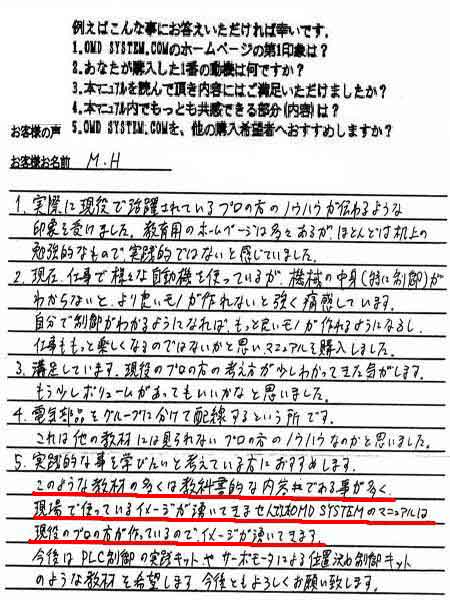 例えばこんな事にお答えいただければ幸いです。
1.OMD SYSTEM.COMのホームページの第1印象は?
2.あなたが購入した1番の動機は何ですか?
3.本マニュアルを読んで頂き内容にはご満足いただけましたか?
4.本マニュアル内でもっとも共感できる部分(内容)は?
お客様の声 5.OMD SYSTEM.COMを、他の購入希望者へおすすめしますか?
お客様お名前 M.H
1. 実際に現役で活躍されているプロの方のノウハウが伝わるような
印象を受けました。教育用のホームページは多々あるが、ほとんどは机上の
勉強的なもので、実践的ではないと感じていました。
2. 現在、仕事で様々な自動機を使っているが、機械の中身(特に制御)が
わからないと、より良いモノが作れないと強く痛感しています。
自分で制御がわかるようになれば、もっと良いモノが作れるようになるし、
仕事ももっと楽しくなるのではないかと思い、マニュアルを購入しました。
3. 満足しています。現役のプロの方の考え方が少しわかってきた気がします。
もう少しボリュームがあってもいいかなと思いました。
4. 電気部品をグループに分けて配線するという所です。
これは他の教材には見られないプロの方のノウハウなのかと思いました。
5. 実践的な事を学びたいと考えている方におすすめします。
このような教材の多くは教科書的な内容である事が多く、
現場で使っているイメージが湧いてきませんがOMD SYSTEMのマニュアルは
現役のプロの方が作っているのでイメージが湧いてきます。
今後はPLC制御の実践キットやサーボモータによる位置決め制御キット
のような教材を希望します。今後ともよろしくお願い致します。